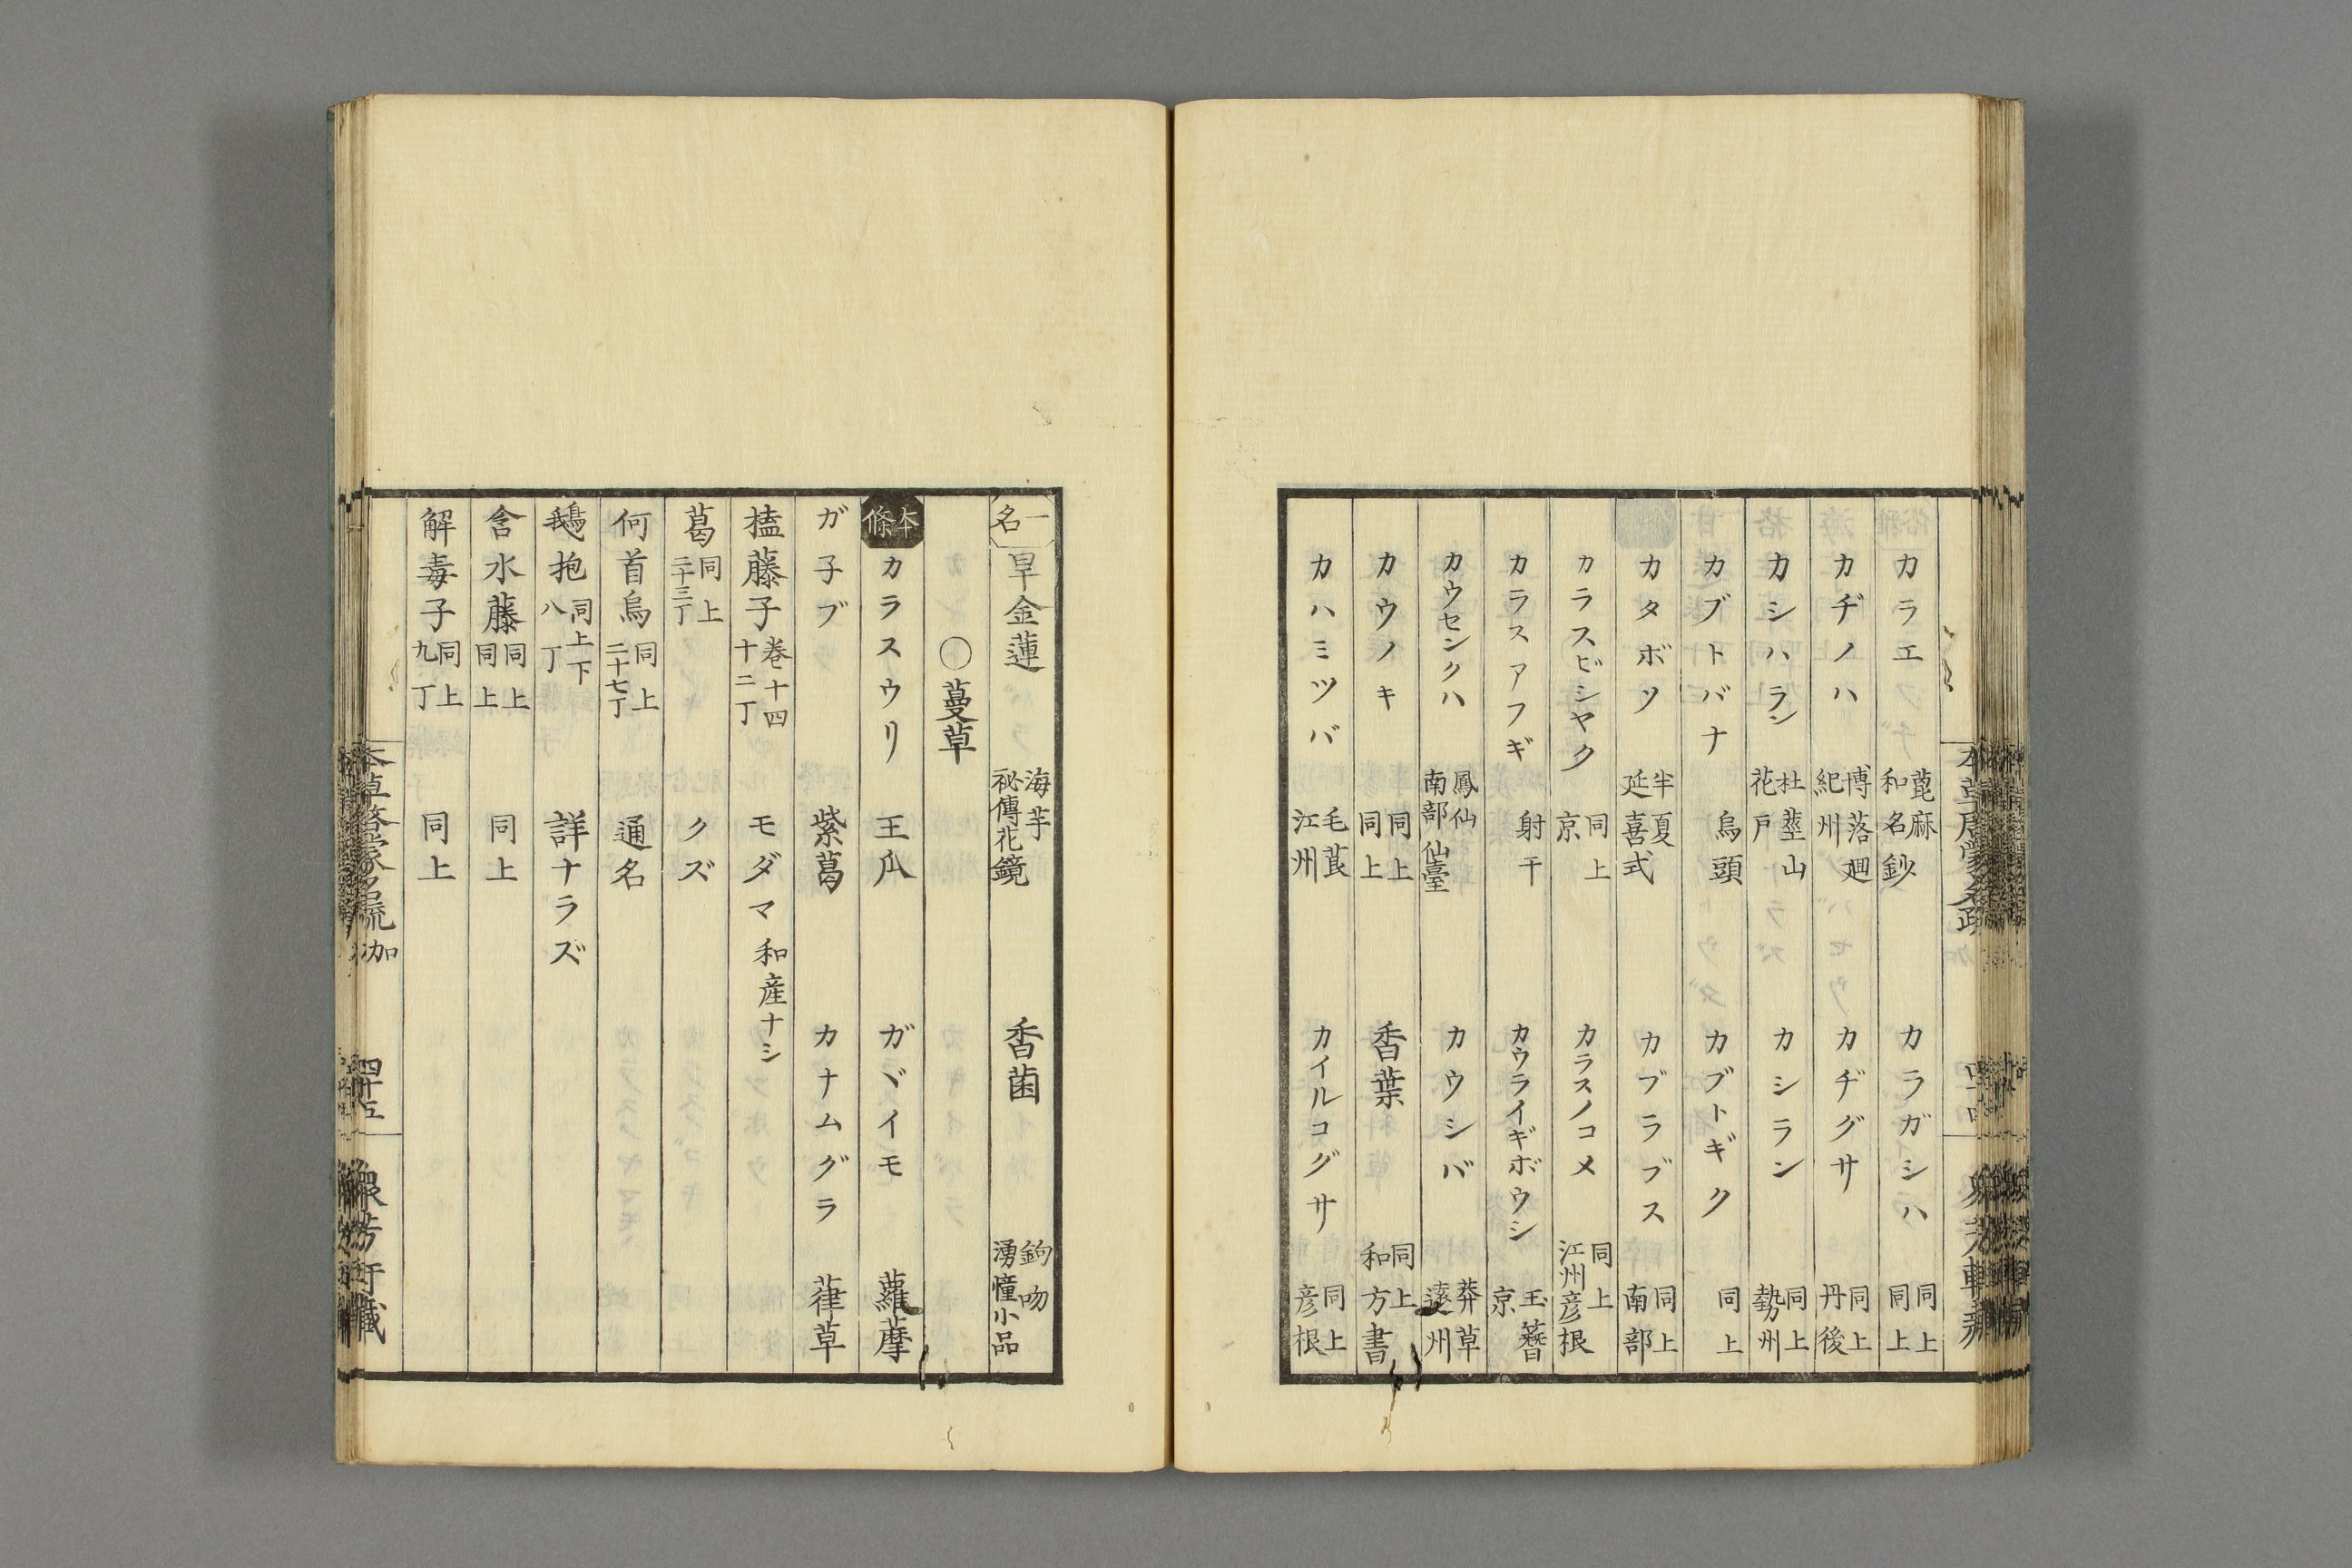 カラエ 蓖麻 和名鈔 カラガシハ 同上 同上
カヂノハ 博落廻 紀州 カヂグサ 同上 丹後
カシハラン 杜莖山 花戸 カシラン 同上 勢州
カブトバナ 烏頭 カブトギク 同上
カタボソ 半夏 延喜式 カブラブス 同上 南部
カラスビシヤク 同上 京 カラスノコメ 同上 江州彦根
カラスアフギ 射干 カウライギボウシ 玉簪 京
カウセンクハ 鳳仙 南部 仙臺 カウシバ 莽草 遠州
カウノキ 同上 同上 香葉 同上 和方書
カハミツバ 毛莨 江州 カイルコグサ 同上 彦根
一名 旱金蓮 海芋 祕傳花鏡 香菌 鉤吻 湧幢小品
〇蔓草
本條 カラスウリ 王瓜 ガヾイモ 蘿藦
ガ子ブ 紫葛 カナムグラ 葎草
榼藤子 卷十四 十二丁 モダマ 和産ナシ
葛 同上 二十三丁 クズ
何首烏 同上 二十七丁 通名
鵝抱 同上下 八丁 詳ナラズ
含水藤 同上 同上 同上
解毒子 同上 九丁 同上
本草啓蒙名疏 加 四十五 衆芳軒藏